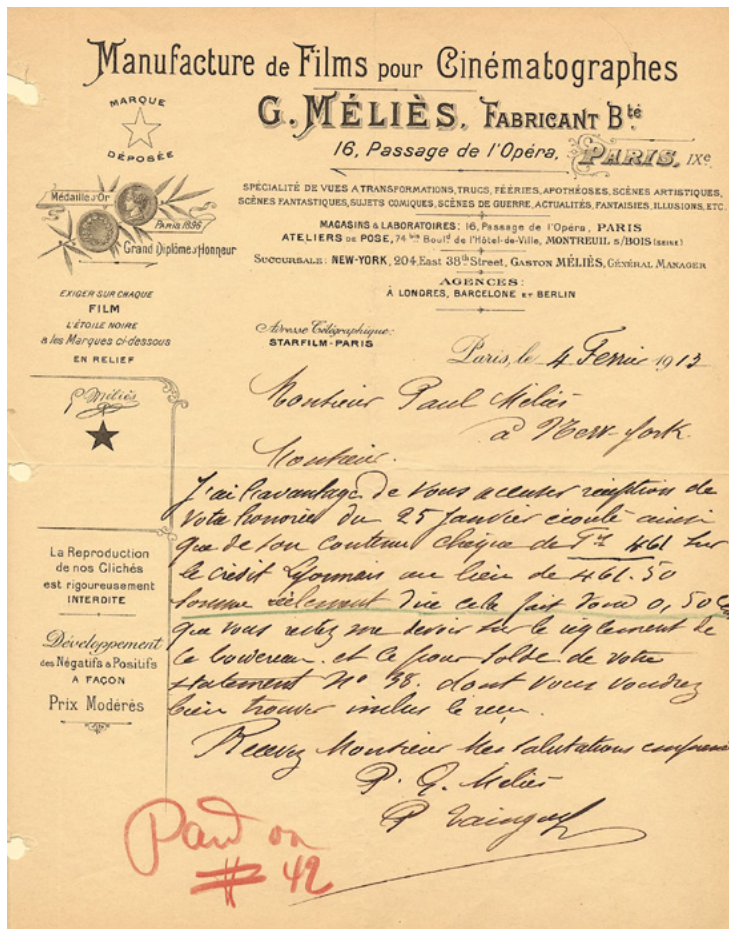 Manufacture de Films pour Cinématographes
G. MÉLIÈS, FABRICANT Bté
16, Passage de l'Opéra, PARIS, IXe
MARQUE
DÉPOSÉE
Médaille d'Or
PARIS 1896
Grand Diplôme d'Honneur
SPÉCIALITÉ DE VUES A TRANSFORMATIONS, TRUCS, FÉERIES, APOTHÉOSES, SCÈNES ARTISTIQUES,
SCÈNES FANTASTIQUES, SUJETS COMIQUES, SCÈNES DE GUERRE, ACTUALITÉS, FANTAISIES, ILLUSIONS, ETC.
MAGASINS & LABORATOIRES: 16, Passage de l'Opéra, PARIS
ATELIERS DE POSE, 74 bis Boulд de l'Hôtel-de-Ville, MONTREUIL S/BOIS (SEINE)
SUCCURSALE: NEW-YORK, 204, East 38th Street, GASTON MÉLIÈS, GÉNÉRAL MANAGER
AGENCES:
À LONDRES, BARCELONE ET BERLIN
EXIGER SUR CHAQUE
FILM
L'ÉTOILE NOIRE
& les Marques ci-dessous
EN RELIEF
Adresse Télégraphique:
STARFILM-PARIS
Paris, le 4 Fevrier 1913
G. Méliès
La Reproduction
de nos Clichés
est rigoureusement
INTERDITE
Développement
des Négatifs & Positifs
A FAÇON
Prix Modérés
Monsieur Paul Méliès
à New-York.
Monsieur.
J'ai l'avantage de vous accuser réception de
votre honorée du 25 Janvier écoulé ainsi
que de son contenu chèque de Frs 461 sur
le crédit Lyonnais au lieu de 461.50
somme réellement due cela fait donc 0,50
que vous restez me devoir sur le règlement de
ce bordereau. et ce pour solde de votre
statement No 38. dont vous voudrez
bien trouver inclus le reçu.
Recevez Monsieur mes salutations
P. G. Méliès
P
Paid on
# 42